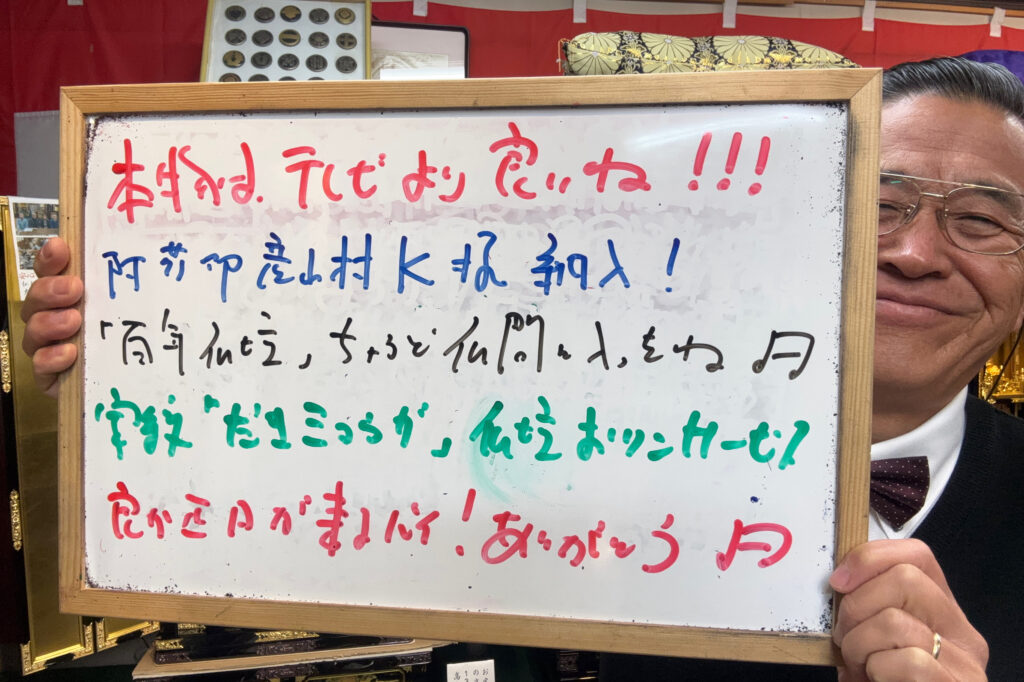 本物は、テレビより良いね!!!
阿蘇郡産山村K様納入!
「百年仏壇」ちょうど仏間に入ったね♬
家紋「だきみょうが」仏壇おリンサービス
良か正月がまるバイ!ありがとう♬